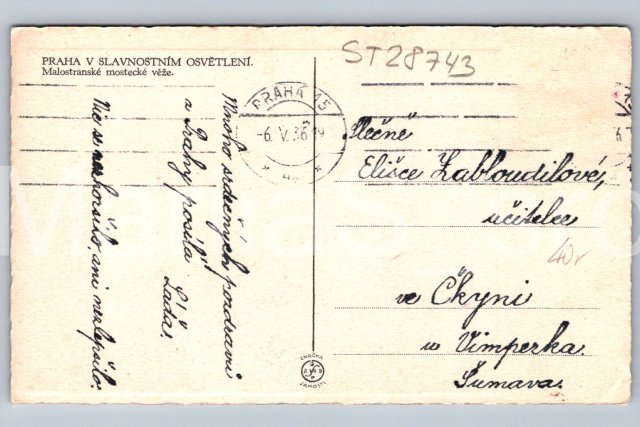 PRAHA V SLAVNOSTNÍM OSVĚTLENÍ.
Malostranské mostecké věže.
ST28743
PRAHA 15
-6.V.36
Mnoho srdečných pozdravů
z Prahy posílá
Láďa.
Nic se nezhoršilo, ani nezlepšilo.
Slečně
Elišce Zabloudilové,
učitelce
ve Čkyni
u Vimperka.
Šumava.
40,-
ZNAČKA
JAKOSTI